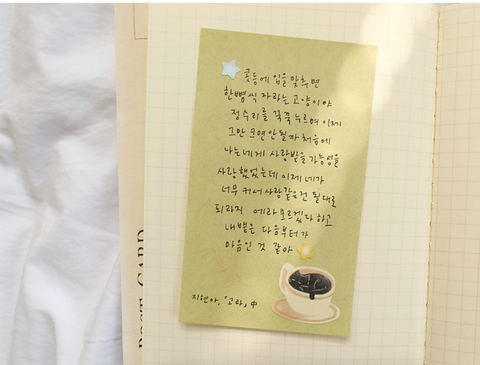 콧등에 입을 맞추면
한뼘씩 자라는 고양이야
정수리를 꾹꾹 누르며 이제
그만 크면 안될까 처음에
나는 네게 사랑받을 가능성을
사랑했었는데 이제 네가
너무 커서 사랑같은건 될대로
되라지 에라 모르겠다 하고
내뱉은 다음부터가
마음인 것 같아
지현아, 「고라」 中
POST CARD